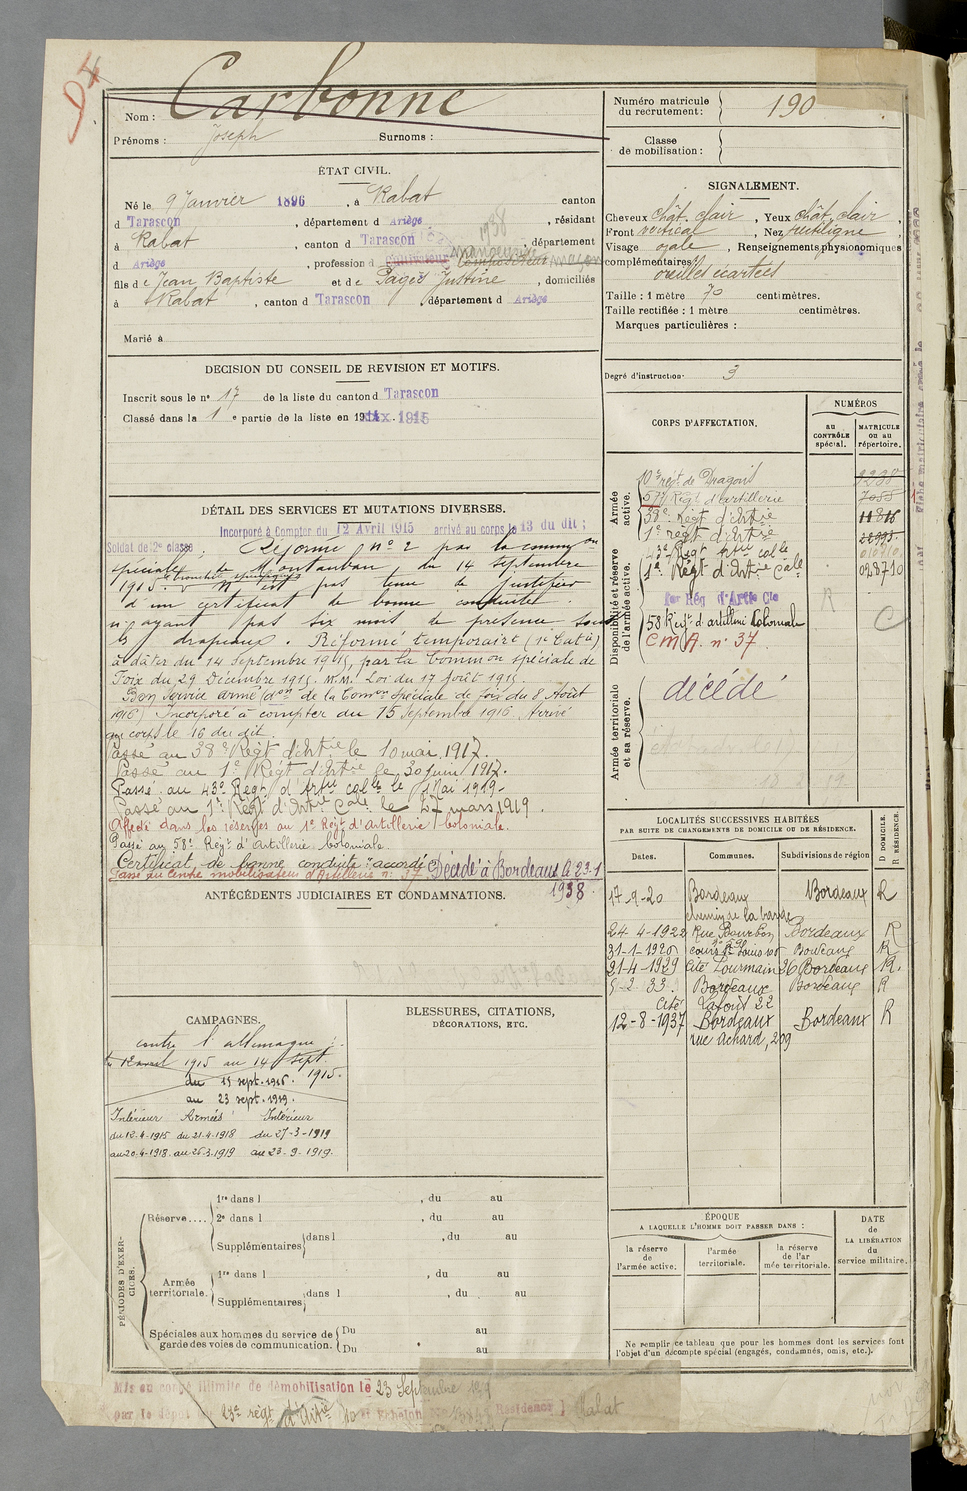 D4
Nom : Carbonne
Prénoms : Joseph Surnoms :
ÉTAT CIVIL.
Né le 9 Janvier 1896 , à Rabat canton
d Tarascon , département d Ariège , résidant
à Rabat , canton d Tarascon , département
1938
d Ariège , profession d cultivateur manoeuvre maçon
fils de Jean Baptiste et de Pagès Justine , domiciliés
à Rabat , canton d Tarascon , département d Ariège
Marié à
DECISION DU CONSEIL DE REVISION ET MOTIFS.
Inscrit sous le n° 17 de la liste du canton d Tarascon
Classé dans la 1 e partie de la liste en 1915
DÉTAIL DES SERVICES ET MUTATIONS DIVERSES.
Incorporé à Compter du 12 Avril 1915 arrivé au corps le 13 du dit ;
Soldat de 2e classe. Réformé n° 2 par la common
spéciale de Montauban du 14 septembre
1915. N'est pas tenu de justifier
d'un certificat de bonne conduite
n'ayant pas six mois de présence sous
les drapeaux. Réformé temporaire (1e Catie)
à dater du 14 Septembre 1915, par la Common spéciale de
Foix du 29 Décembre 1915. Loi du 17 Août 1915.
Bon service armé (don de la Comon Spéciale de foix du 8 Août
1916) Incorporé à compter du 15 Septembre 1916. Arrivé
au corps le 16 du dit.
Passé au 38e Régt d'Artie le 10 mai 1917.
Passé au 1e Régt d'Artie le 30 juin 1917.
Passé au 43e Régt d'Artie colle le 1 Mai 1919.
Passé au 1e Régt d'Artie Cale le 27 mars 1919.
Affecté dans les réserves au 1e Régt d'Artillerie Coloniale.
Passé au 58e Régt d'Artillerie Coloniale.
Certificat de bonne conduite "accordé"
Passé au Centre mobilisateur d'Artillerie n° 37 Décédé à Bordeaux le 23-1
1938.
ANTÉCÉDENTS JUDICIAIRES ET CONDAMNATIONS.
CAMPAGNES.
contre l'allemagne :
du 12 avril 1915 au 14 sept.
1915.
du 15 sept. 1916.
au 23 sept. 1919.
Intérieur Armées Intérieur
du 12-4-1915 du 21-4-1918 du 27-3-1919
au 20-4-1918. au 26-3-1919 au 23-9-1919.
BLESSURES, CITATIONS,
DÉCORATIONS, ETC.
PÉRIODES D'EXERCICES.
Réserve.... 1re dans l , du au
2e dans l , du au
Supplémentaires dans l , du au
Armée territoriale. 1re dans l , du au
Supplémentaires dans l , du au
Spéciales aux hommes du service de Du au
garde des voies de communication. Du au
Mis en congé illimité de démobilisation le 23 Septembre 1919
par le dépôt du 23e régt d'Artie 10e échelon Résidence Rabat
Numéro matricule
du recrutement : 190
Classe
de mobilisation :
SIGNALEMENT.
Cheveux chât. clair , Yeux chât. clair ,
Front vertical , Nez rectiligne ,
Visage ovale , Renseignements physionomiques
complémentaires
oreilles écartées
Taille : 1 mètre 70 centimètres.
Taille rectifiée : 1 mètre centimètres.
Marques particulières :
Degré d'instruction 3
CORPS D'AFFECTATION.
NUMÉROS
au CONTRÔLE spécial.
MATRICULE ou au répertoire.
Armée active.
10e régt de Dragons
57e Régt d'artillerie
38e Régt d'Artie
1e régt d'Artie
Disponibilité et réserve de l'armée active.
43e Régt Artie colle
1e Régt d'Artie Cale 028710
1er Rég d'Artie Cle
R
58 Régt d'artillerie Coloniale C
CMA. n° 37.
Armée territoriale et sa réserve.
décédé
LOCALITÉS SUCCESSIVES HABITÉES
PAR SUITE DE CHANGEMENTS DE DOMICILE OU DE RÉSIDENCE.
D DOMICILE. R RÉSIDENCE.
Dates. Communes. Subdivisions de région
17-9-20 Bordeaux Bordeaux R
chemin de la barde
24-4-1922 Rue Bourbon Bordeaux R
31-1-1926 cours St Louis 108 Bordeaux R
21-4-1929 Cité Lourmain 26 Bordeaux R.
5-2 33. Bordeaux Bordeaux R
Cité Lafont 22
12-8-1937 Bordeaux Bordeaux R
rue Achard, 209
ÉPOQUE
A LAQUELLE L'HOMME DOIT PASSER DANS :
la réserve de l'armée active.
l'armée territoriale.
la réserve de l'ar mée territoriale.
DATE de LA LIBÉRATION du service militaire.
Ne remplir ce tableau que pour les hommes dont les services font
l'objet d'un décompte spécial (engagés, condamnés, omis, etc.).